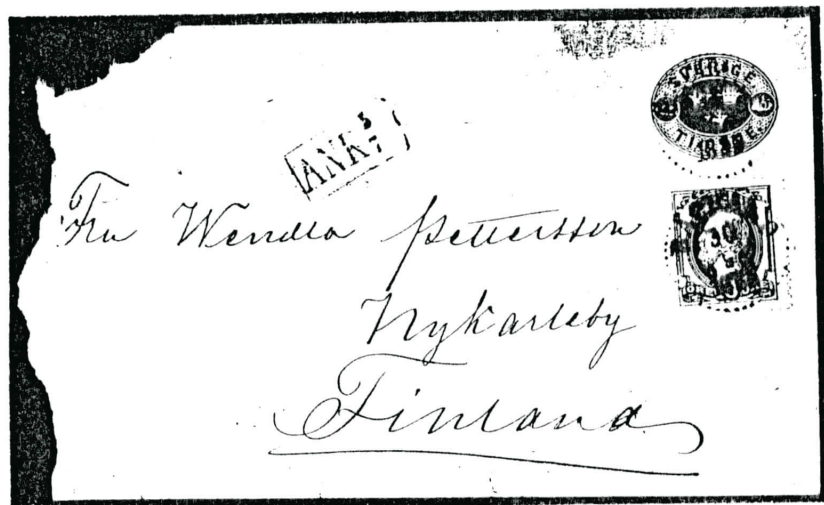 SVERIGE
TIO ÖRE
ANK 5/7
Fru Wendla Pettersson
Nykarleby
Finland
30